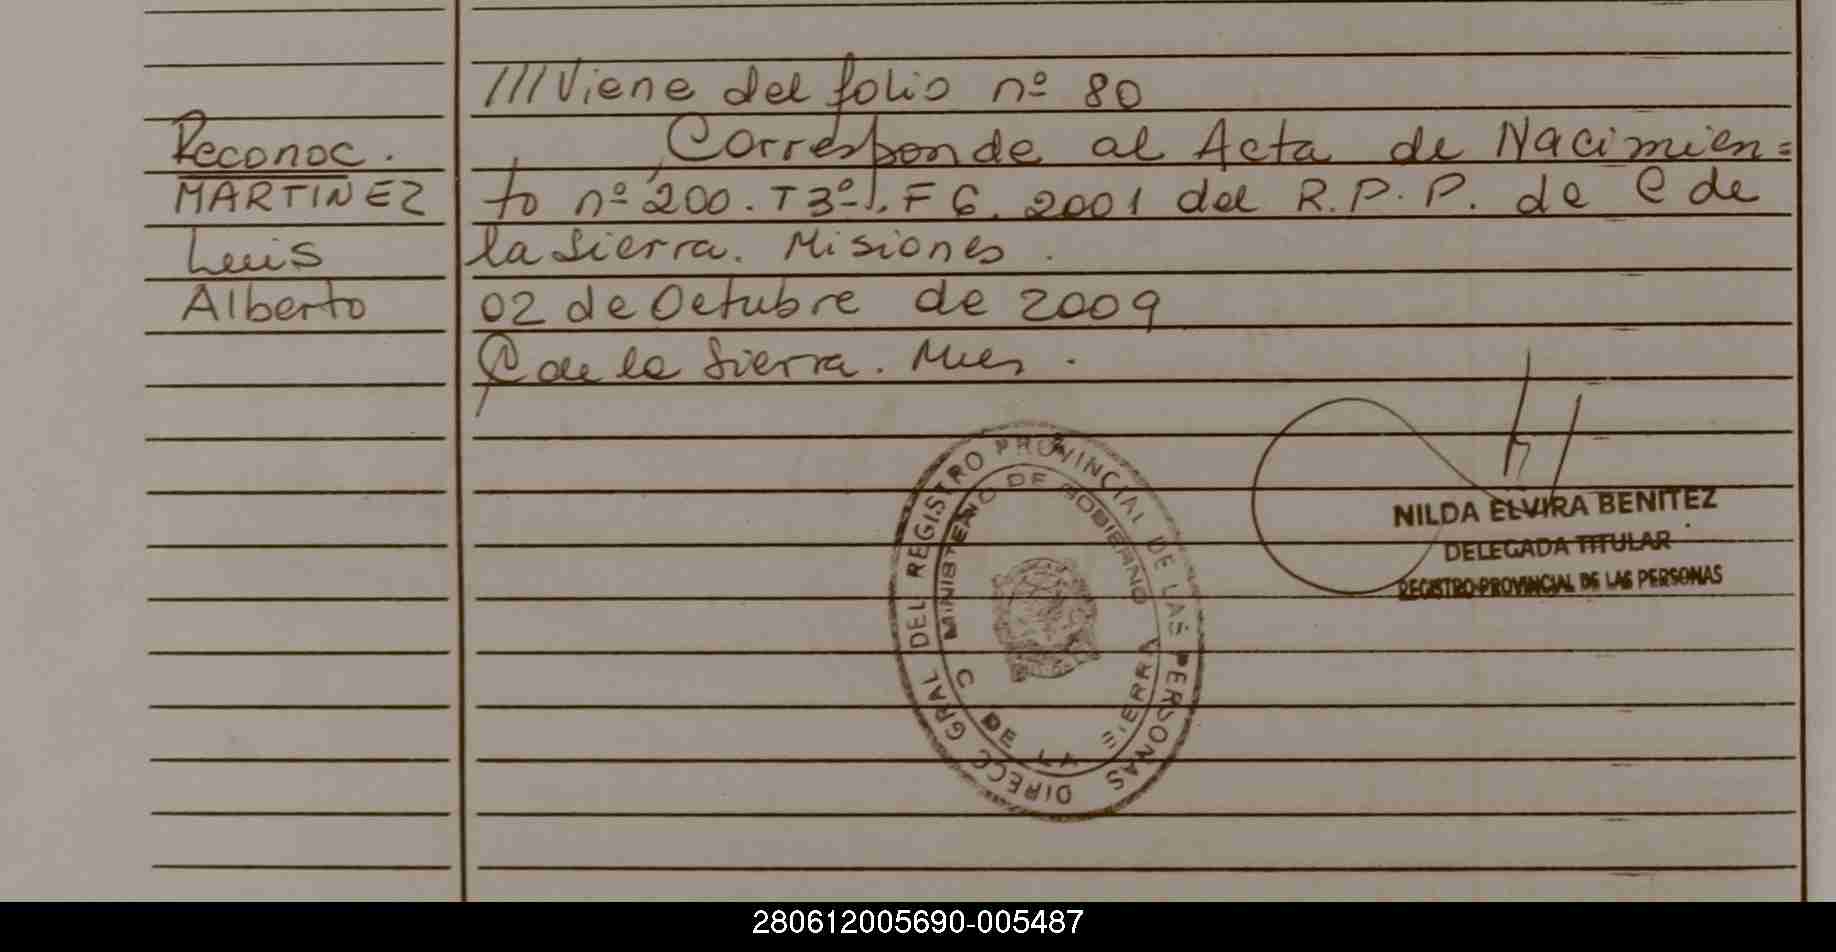 ///Viene del folio nº 80
Reconoc.
MARTINEZ
Luis
Alberto
Corresponde al Acta de Nacimien=
to nº 200. T3º. F 6. 2001 del R.P.P. de C de
la Sierra. Misiones.
02 de Octubre de 2009
C de la Sierra. Mnes.
DIRECC GRAL DEL REGISTRO PROVINCIAL DE LAS PERSONAS
MINISTERIO DE GOBIERNO
C DE LA SIERRA
NILDA ELVIRA BENITEZ
DELEGADA TITULAR
REGISTRO PROVINCIAL DE LAS PERSONAS
280612005690-005487